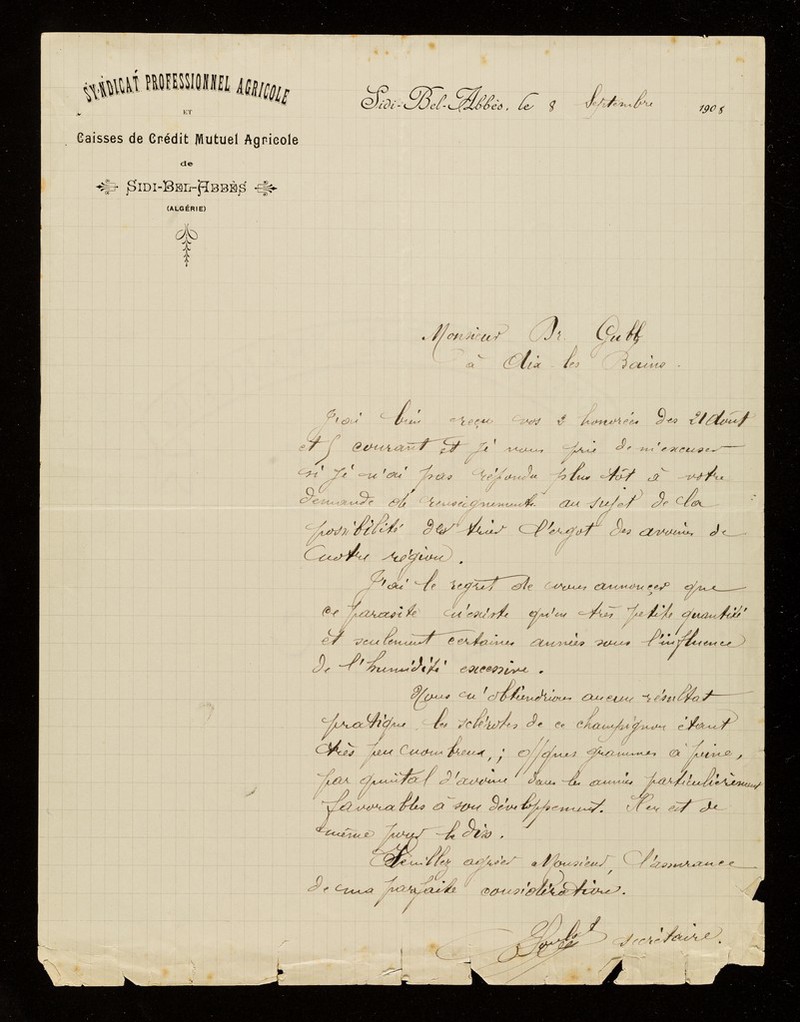 SYNDICAT PROFESSIONNEL AGRICOLE
ET
Caisses de Crédit Mutuel Agricole
de
SIDI-BEL-ABBÈS
(ALGÉRIE)
Sidi-Bel-Abbès, le 8 Septembre 1908
Monsieur Dr Gubb
à Aix les Bains.
J'ai bien reçu vos 2 honorées des 21 Août
et 5 courant et je vous prie de m'excuser
si je n'ai pas répondu plus tôt à votre
demande de renseignements au sujet de la
possibilité de trier l'ergot des avoines de
notre région.
J'ai le regret de vous annoncer que
ce parasite n'existe qu'en très petite quantité
et seulement certaines années sous l'influence
de l'humidité excessive.
Nous n'obtiendrions aucun résultat
pratique les sclérotes de ce champignon étant
très peu nombreux, ; qques grammes à peine,
par quintal d'avoine dans les années particulièrement
favorables à son développement. Il en est de
même pour le diss.
Veuillez agréer Monsieur, l'assurance
de ma parfaite considération.
secrétaire.